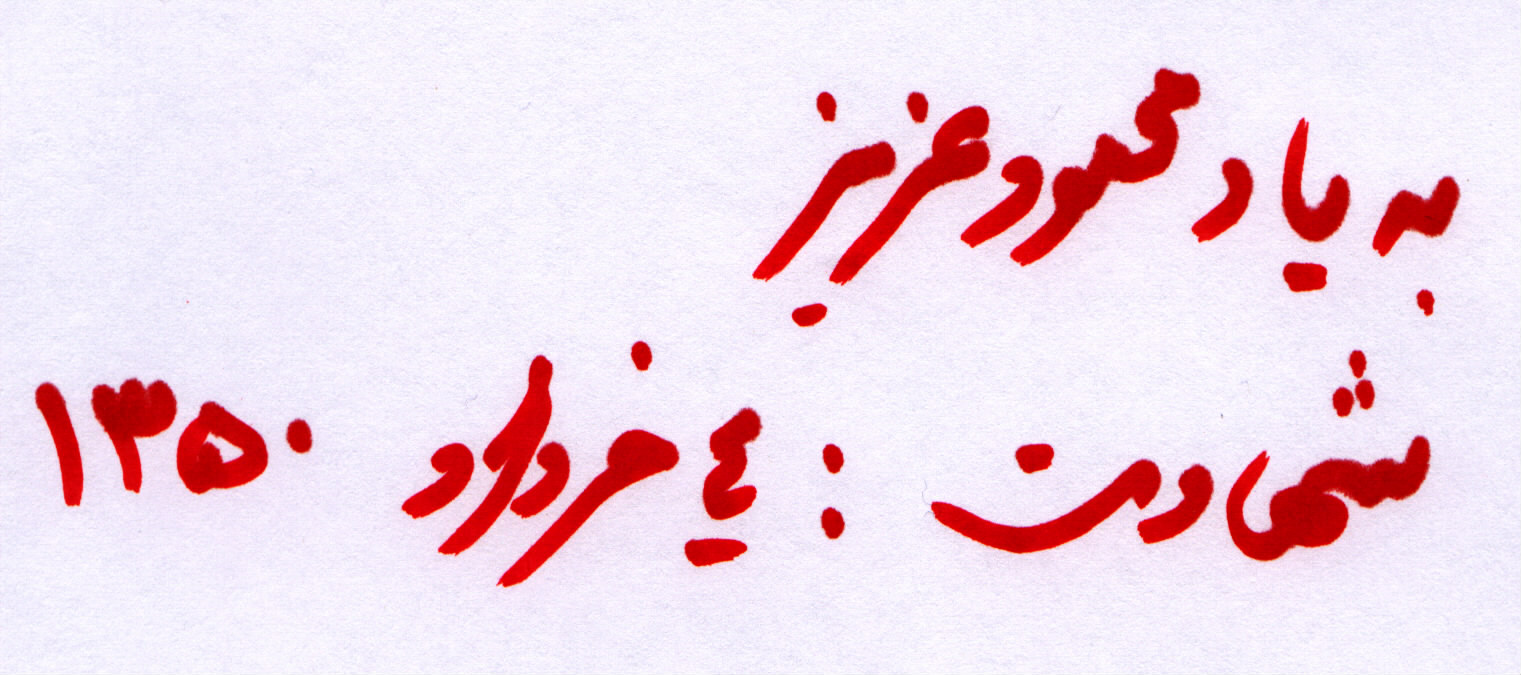 به یاد محمود عزیز
شهادت : ٤ خرداد ۱۳۵۰